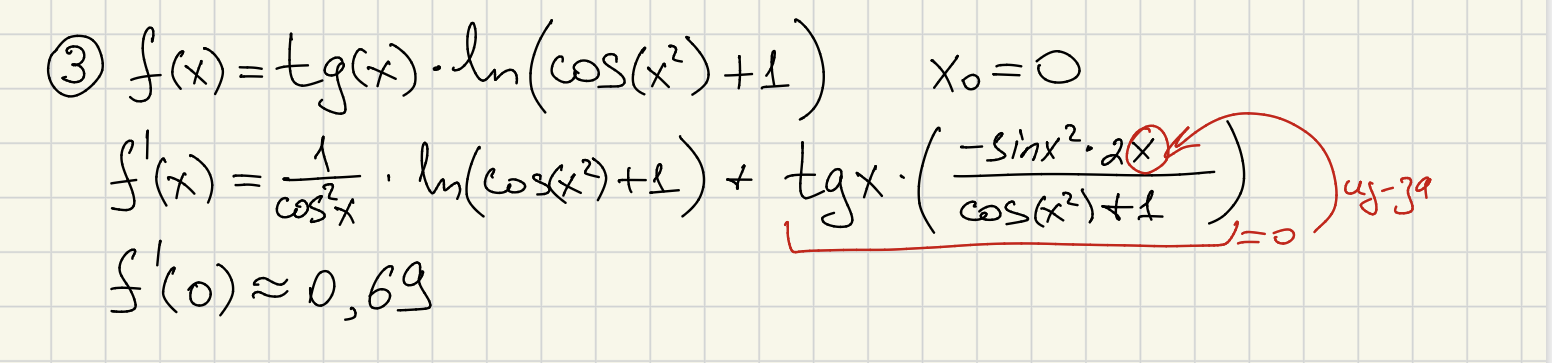 ③ f(x) = tg(x) · ln(cos(x²) + 1) x₀ = 0
f'(x) = 1/cos²x · ln(cos(x²) + 1) + tgx · (-sinx² · 2x / cos(x²) + 1) = 0 из-за
f'(0) ≈ 0,69